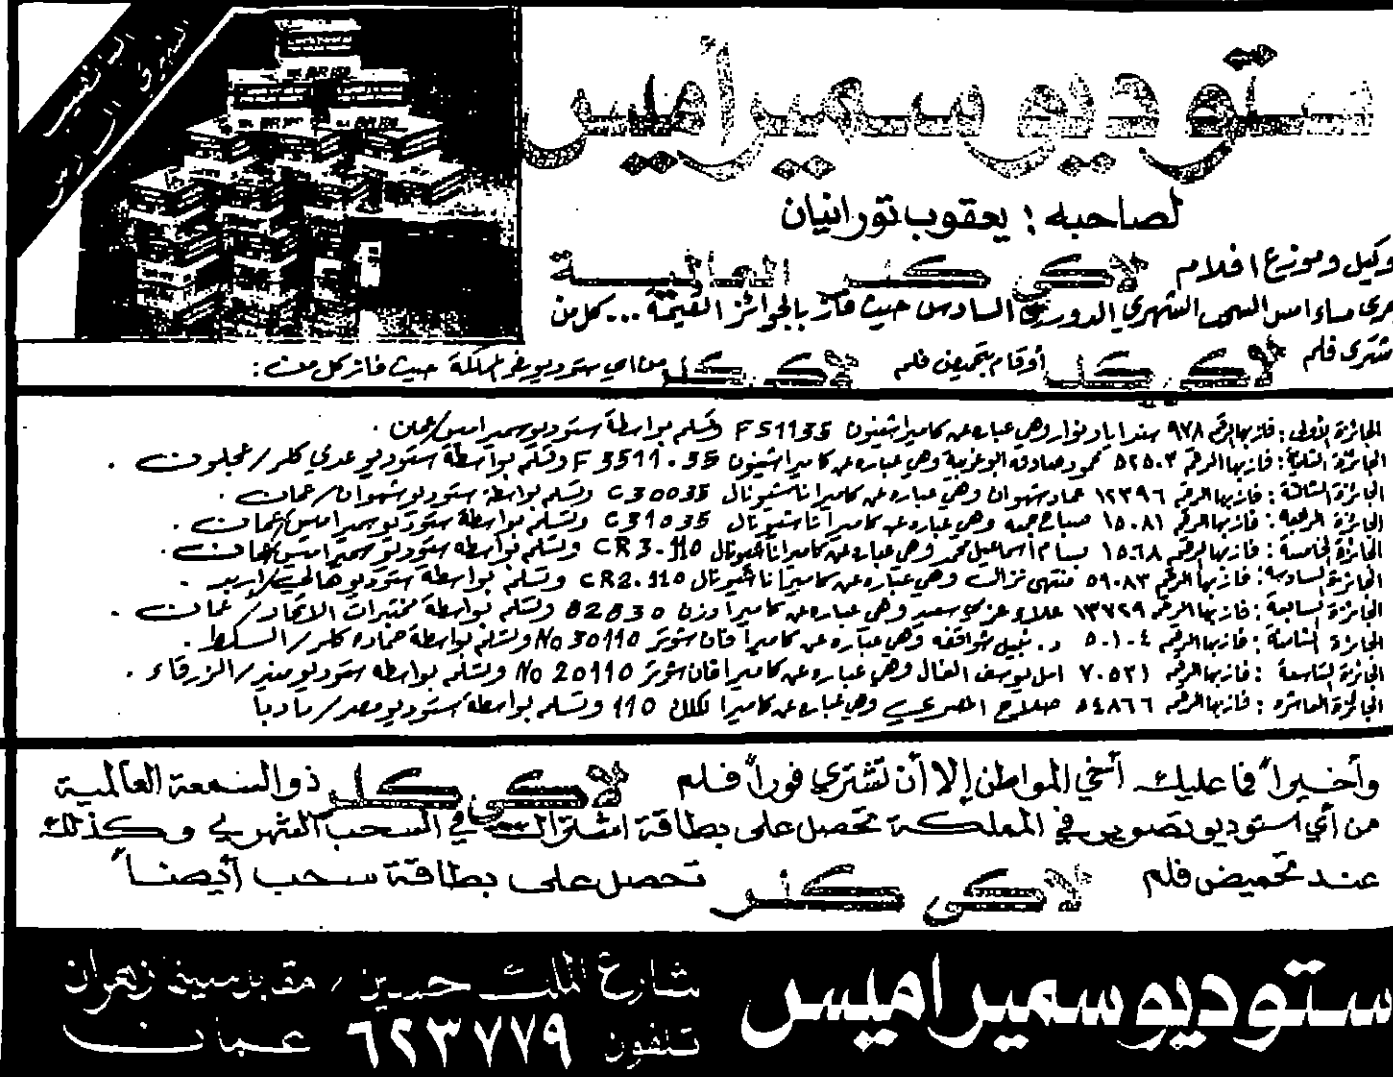 ستوديو سميراميس
لصاحبه : يعقوب تورانيان
وكيل وموزع افلام لاكي كلر العالمية
جرى مساء امس السحب الشهري الدوري السادس حيث فاز بالجوائز القيمة ... كل من
اشترى فلم لاكي كلر أو قام بتحميض فلم لاكي كلر من اي ستوديو في المملكة حيث فاز كل من :
الجائزة الأولى : فاز بها الرقم ٩٧٨ وهي عباره عن كاميرا شينون FS1135 وتسلم بواسطة ستوديو سميراميس / عمان .
الجائزة الثانية : فاز بها الرقم ٥٢٥٠٣ محمود صادق ابو عزبية وهي عباره عن كاميرا شينون F3511.35 وتسلم بواسطة ستوديو عدي كلر / عجلون .
الجائزة الثالثة : فاز بها الرقم ١٢٣٩٦ عماد شهوان وهي عباره عن كاميرا ناشيونال C30035 وتسلم بواسطة ستوديو شهوان / عمان .
الجائزة الرابعة : فاز بها الرقم ١٥٠٨١ صباح جمعه وهي عباره عن كاميرا ناشيونال C31035 وتسلم بواسطة ستوديو سميراميس / عمان .
الجائزة الخامسة : فاز بها الرقم ١٥٦٨ بسام اسماعيل محمد وهي عباره عن كاميرا ناشيونال CR3.110 وتسلم بواسطة ستوديو سميراميس / عمان .
الجائزة السادسة : فاز بها الرقم ٥٩٠٨٣ منتهى نزال وهي عباره عن كاميرا ناشيونال CR2.110 وتسلم بواسطة ستوديو هالي / اربد .
الجائزة السابعة : فاز بها الرقم ١٣٧٢٩ علاء عزمي سعيد وهي عباره عن كاميرا وزن 82830 وتسلم بواسطة مختبرات الاتحاد / عمان .
الجائزة الثامنة : فاز بها الرقم ٥٠١٠٤ د. نبيل شواقفه وهي عباره عن كاميرا فان شوتر No 30110 وتسلم بواسطة حماده كلر / السلط .
الجائزة التاسعة : فاز بها الرقم ٧٠٥٢١ امل يوسف الفال وهي عباره عن كاميرا فان شوتر No 20110 وتسلم بواسطة ستوديو منير / الزرقاء .
الجائزة العاشرة : فاز بها الرقم ٥٤٨٦٦ صلاح المصري وهي عباره عن كاميرا 110 وتسلم بواسطة ستوديو مصر / مادبا
وأخيراً فما عليك أخي المواطن إلا أن تشتري فوراً فلم لاكي كلر ذو السمعة العالمية
من أي استوديو تصوير في المملكة تحصل على بطاقة اشتراك في السحب الشهري وكذلك
عند تحميض فلم لاكي كلر تحصل على بطاقة سحب أيضاً
ستوديو سميراميس
شارع الملك حسين / مقابل سينما زهران
تلفون ٦٢٣٧٧٩ عمان